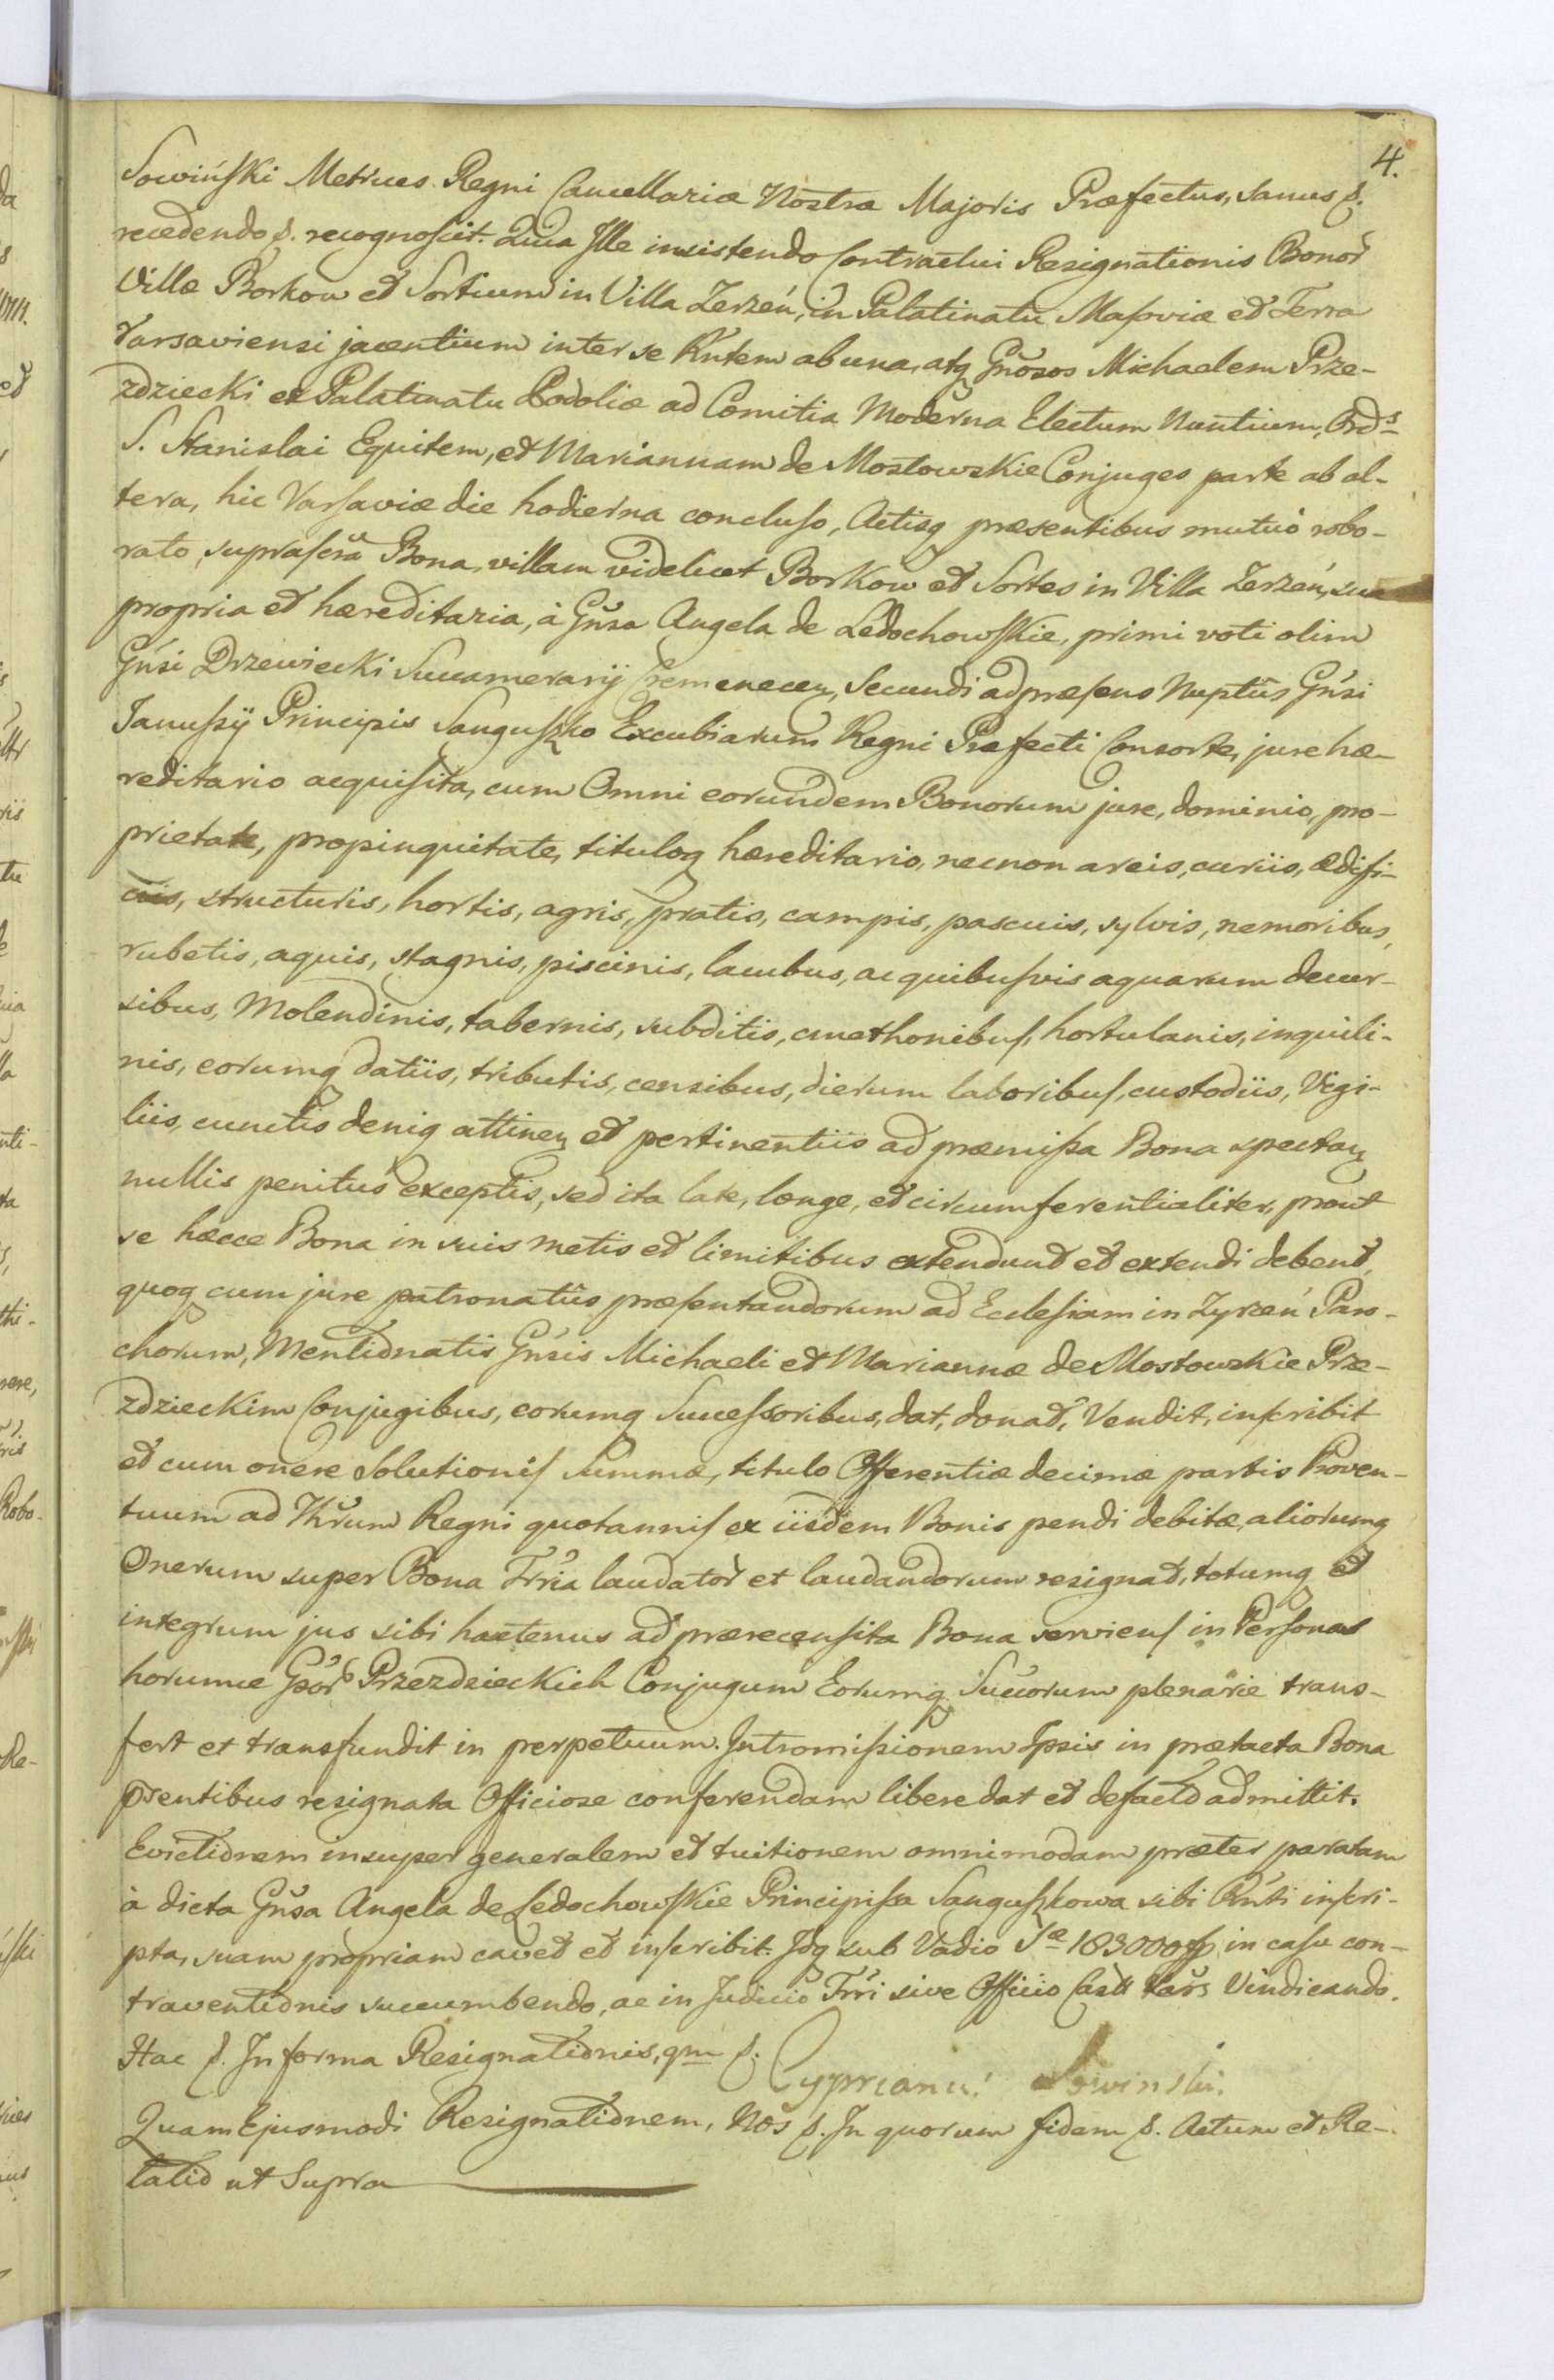 4.
Sowińſki Metrices Regni Cancellariæ Nostræ Majoris Præfectus, sanus p.
recedendo p. recognoſcit. Quia Ille insistendo Contractui Resignationis Bonor̃
Villæ Borkow et Sortium in Villa Zerzeń, in Palatinatu Maſoviæ et Terra
Varsaviensi jacentium inter se Rñtem ab una, atq Gñosos Michaelem Prze-
zdziecki ex Palatinatu Podoliæ ad Comitia Moderna Electum Nuntium, Ordˢ
S. Stanislai Equitem, et Mariannam de Mostowskie Conjuges parte ab al-
tera, hic Varſaviæ die hodierna concluſo, Actisq præsentibus mutuò robo-
rato, supraſcr̃a Bona, villam videlicet Borkow et Sortes in Villa Zerzeń, sua
propria et hæreditaria, à Gñsa Angela de Ledochowſkie, primi voti olim
Gñsi Drzewiecki Succamerarij Cremenecen, Secundi ad præſens Nuptûs Gñsi
Januſsÿ Principis Sanguſzko Excubiarum Regni Præfecti Consorte, jure hæ-
reditario acquiſita, cum Omni eorundem Bonorum jure, dominio, pro-
prietate, propinquitate, tituloq hæreditario, necnon areis, curiis, ædifi-
ciis, structuris, hortis, agris, pratis, campis, pascuis, sylvis, nemoribus,
rubetis, aquis, stagnis, piscinis, lacubus, ac quibuſvis aquarum decur-
sibus, Molendinis, tabernis, subditis, cmethonibuſ, hortulanis, inquili-
nis, eorumq datiis, tributis, censibus, dierum laboribuſ, custodiis, Vigi-
liis, cunctis deniq attinen et pertinentiis ad præmiſsa Bona spectan
nullis penitus exceptis, sed ita late, longe, et circumferentialiter, prout
se hæcce Bona in suis metis et limitibus extendunt et extendi debent,
quoq cum jure patronatûs præſentandorum ad Ecclesiam in Zyrzeń Paro-
chorum, Mentionatis Gñsis Michaeli et Mariannæ de Mostowskie Prze-
zdzieckim Conjugibus, eorumq Succeſsoribus, dat, donat, Vendit, inſcribit
et cum onere Solutioniſ Summæ, titulo Offerentiæ decimæ partis Proven-
tuum ad Thr̃um Regni quotanniſ ex iisdem Bonis pendi debitæ, aliorumq
Onerum super Bona Tr̃ria laudator̃ et laudandorum resignat, totumq et
integrum jus sibi hactenus ad præreceńſita Bona servienſ in Perſonas
horumce Gsor̃ Przezdzieckich Conjugum Eorumq Succorum plenarie trans-
fert et transfundit in perpetuum. Intromiſsionem Ipsis in prætacta Bona
pr̃sentibus resignata Officiose conferendam libere dat et defacto admittit.
Evictionem insuper generalem et tuitionem omnimodam præter paratam
à dicta Gñsa Angela de Ledochowſkie Principiſsa Sanguſzkowa sibi Rñti inſcri-
pta, suam propriam cavet et inſcribit. Idq sub Vadio Sæ 183000 fp in caſu con-
traventionis succumbendo, ac in Judicio Tr̃ri sive Officio Castr Vars Vindicando.
Hac p. In forma Resignationis, qm p.
Cyprianus Sowinski.
Quam Ejusmodi Resignationem, Nos p. In quorum fidem p. Actum et Re-
latio ut Supra